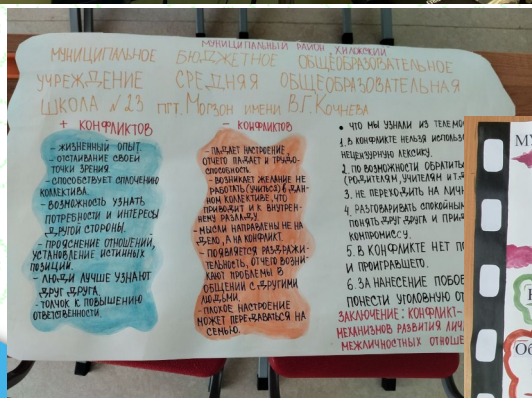 МУНИЦИПАЛЬНЫЙ РАЙОН ХИЛОКСКИЙ
МУНИЦИПАЛЬНОЕ БЮДЖЕТНОЕ ОБЩЕОБРАЗОВАТЕЛЬНОЕ
УЧРЕЖДЕНИЕ СРЕДНЯЯ ОБЩЕОБРАЗОВАТЕЛЬНАЯ
ШКОЛА №23 пгт. Могзон имени В.Г. Кочнева
+ КОНФЛИКТОВ
- ЖИЗНЕННЫЙ ОПЫТ.
- ОТСТАИВАНИЕ СВОЕЙ
ТОЧКИ ЗРЕНИЯ
- СПОСОБСТВУЕТ СПЛОЧЕНИЮ
КОЛЛЕКТИВА.
- ВОЗМОЖНОСТЬ УЗНАТЬ
ПОТРЕБНОСТИ И ИНТЕРЕСЫ
ДРУГОЙ СТОРОНЫ.
- ПРОЯСНЕНИЕ ОТНОШЕНИЙ,
УСТАНОВЛЕНИЕ ИСТИННЫХ
ПОЗИЦИЙ.
- ЛЮДИ ЛУЧШЕ УЗНАЮТ
ДРУГ ДРУГА.
- ТОЛЧОК К ПОВЫШЕНИЮ
ОТВЕТСТВЕННОСТИ.
- КОНФЛИКТОВ
- ПАДАЕТ НАСТРОЕНИЕ,
ОТЧЕГО ПАДАЕТ И ТРУДО-
СПОСОБНОСТЬ
- ВОЗНИКАЕТ ЖЕЛАНИЕ НЕ
РАБОТАТЬ (УЧИТЬСЯ) В ДАН-
НОМ КОЛЛЕКТИВЕ, ЧТО
ПРИВОДИТ И К ВНУТРЕН-
НЕМУ РАЗЛАДУ.
- МЫСЛИ НАПРАВЛЕНЫ НЕ НА
ДЕЛО, А НА КОНФЛИКТ.
- ПОЯВЛЯЕТСЯ РАЗДРАЖИ-
ТЕЛЬНОСТЬ, ОТЧЕГО ВОЗНИ-
КАЮТ ПРОБЛЕМЫ В
ОБЩЕНИИ С ДРУГИМИ
ЛЮДЬМИ.
- ПЛОХОЕ НАСТРОЕНИЕ
МОЖЕТ ПЕРЕДАВАТЬСЯ НА
СЕМЬЮ.
• ЧТО МЫ УЗНАЛИ ИЗ ТЕЛЕМО
1. В КОНФЛИКТЕ НЕЛЬЗЯ ИСПОЛЬЗО
НЕЦЕНЗУРНУЮ ЛЕКСИКУ.
2. ПО ВОЗМОЖНОСТИ ОБРАТИТЬ
(РОДИТЕЛЯМ, УЧИТЕЛЯМ И Т.Д
3. НЕ ПЕРЕХОДИТЬ НА ЛИЧН
4. РАЗГОВАРИВАТЬ СПОКОЙНЫ
ПОНЯТЬ ДРУГ ДРУГА И ПРИД
КОМПРОМИССУ.
5. В КОНФЛИКТЕ НЕТ П
И ПРОИГРАВШЕГО.
6. ЗА НАНЕСЕНИЕ ПОБОЕ
ПОНЕСТИ УГОЛОВНУЮ ОТ
ЗАКЛЮЧЕНИЕ: КОНФЛИКТ-
МЕХАНИЗМОВ РАЗВИТИЯ ЛИЧ
МЕЖЛИЧНОСТНЫХ ОТНОШЕ